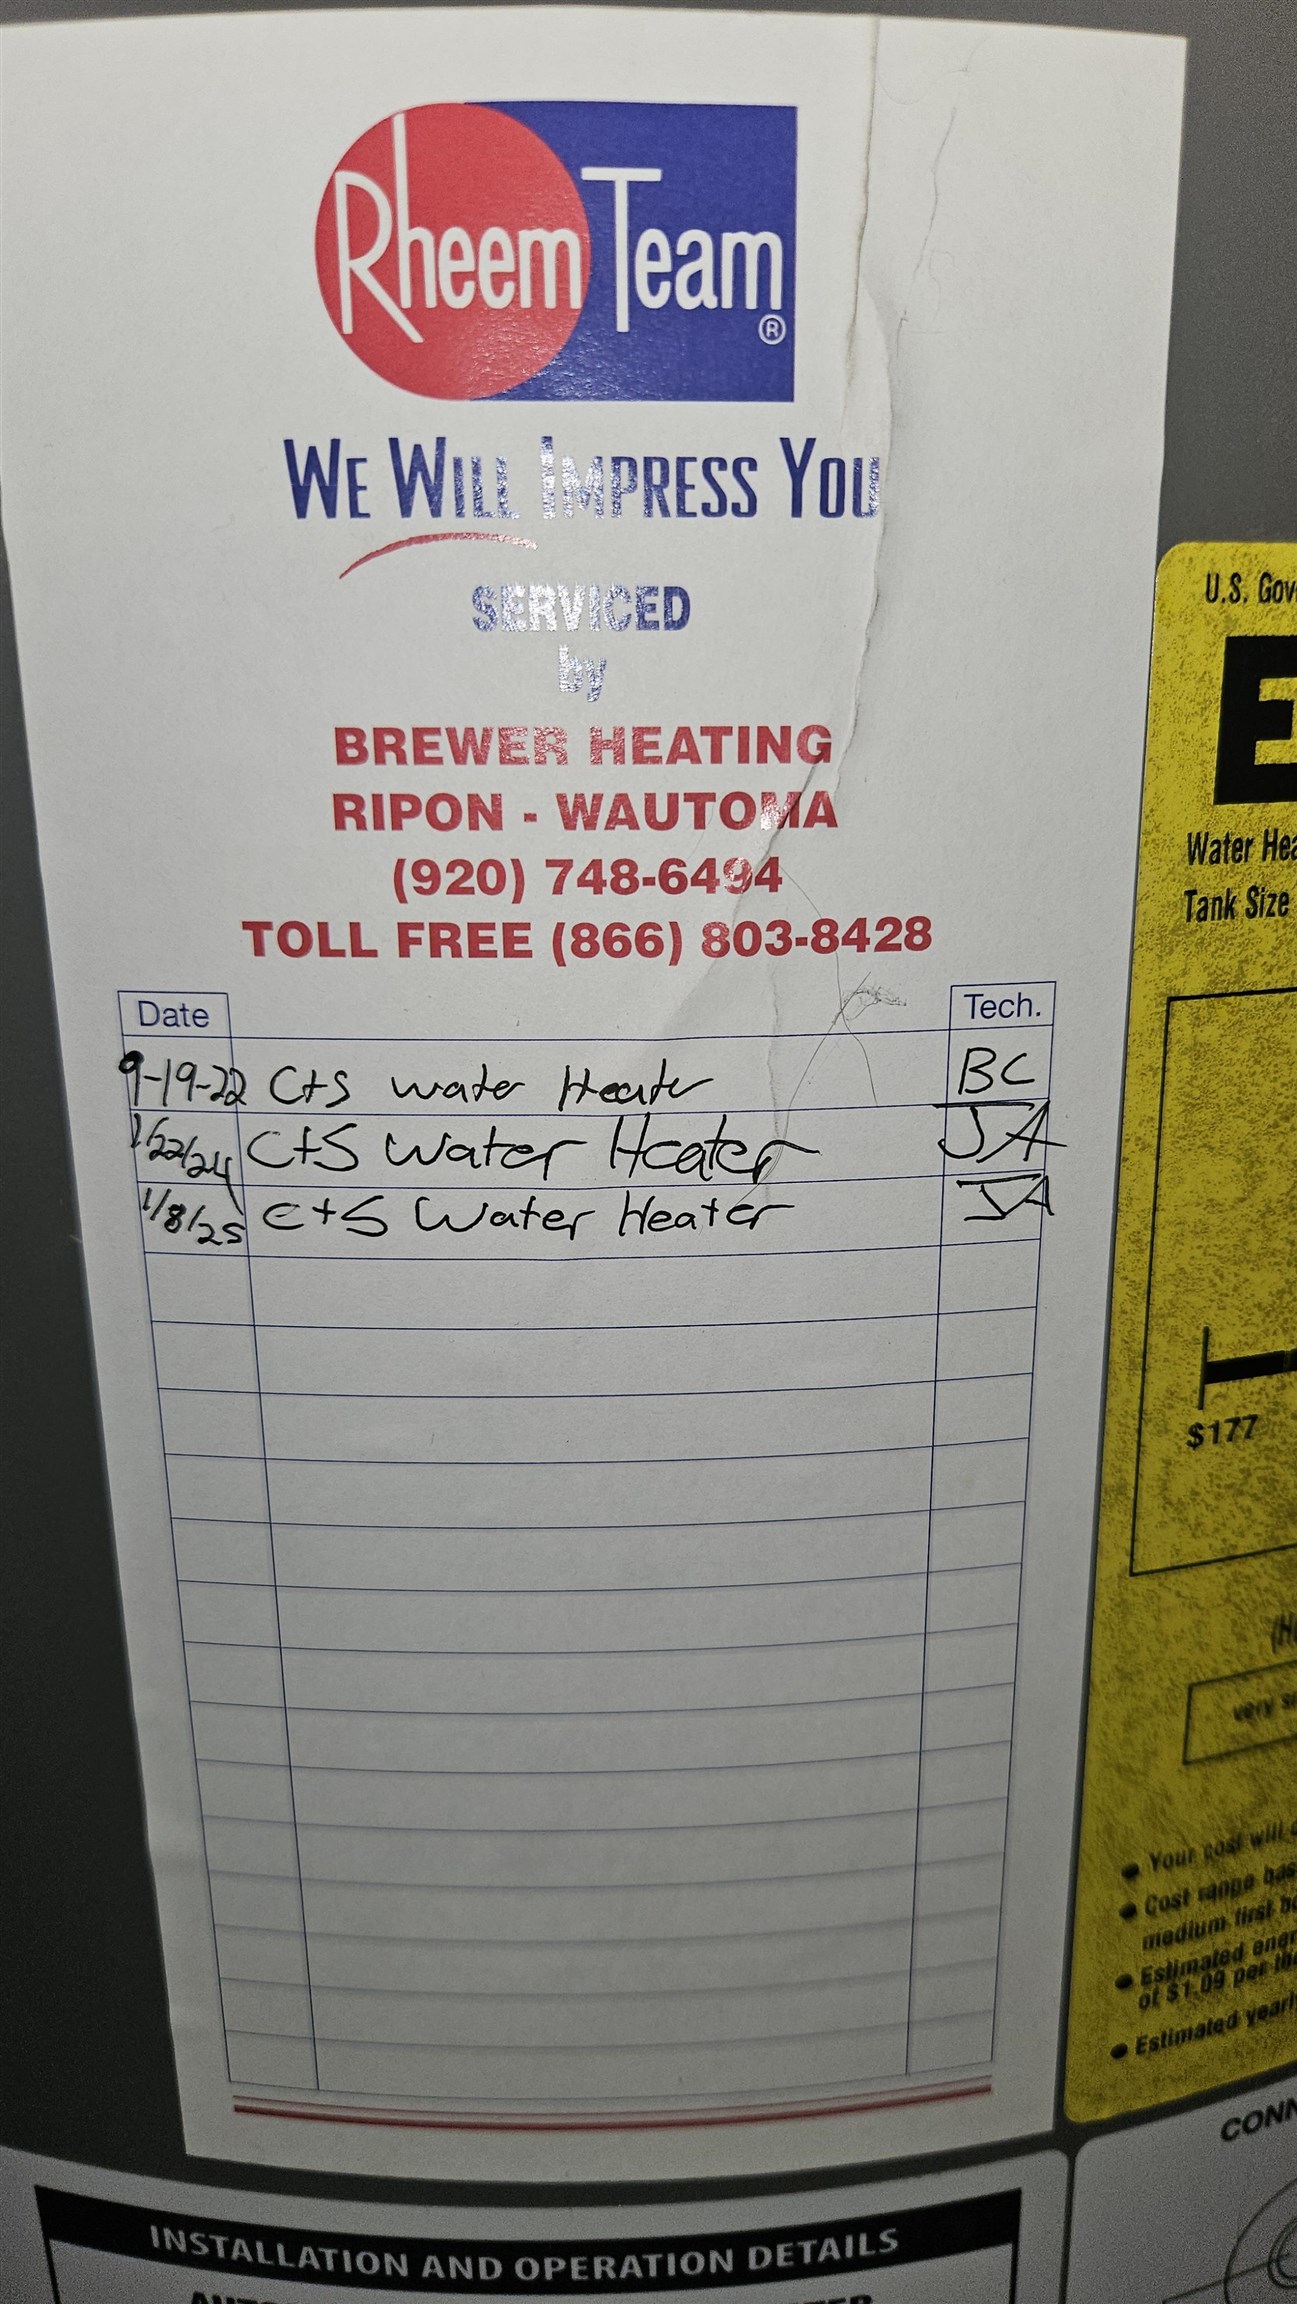 Rheem Team®
WE WILL IMPRESS YOU
SERVICED
by
BREWER HEATING
RIPON - WAUTOMA
(920) 748-6494
TOLL FREE (866) 803-8428
Date Tech.
9-19-22 C+S water Heater BC
1/22/24 C+S Water Heater JA
1/8/25 C+S Water Heater JA
U.S. Gov
E
Water Hea
Tank Size
$177
(H
very s
• Your cost will
• Cost range bas
medium first h
• Estimated ener
of $1.09 per the
• Estimated yearl
CONN
INSTALLATION AND OPERATION DETAILS